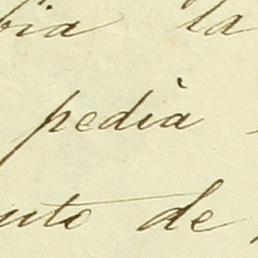 bia la
pedia
uto de